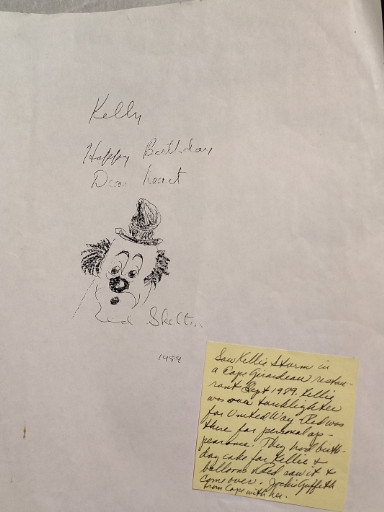 Kelly
Happy Birthday
Dear heart
Red Skelton
1989
Saw Kellie Sturm in
a Cape Girardeau restau-
rant Sept 1989. Kellie
was our torchlighter
for United Way. Red was
there for personal ap-
pearance. They had birth-
day cake for Kellie &
balloons & Red saw it &
came over. Griffith
from Cape with her.